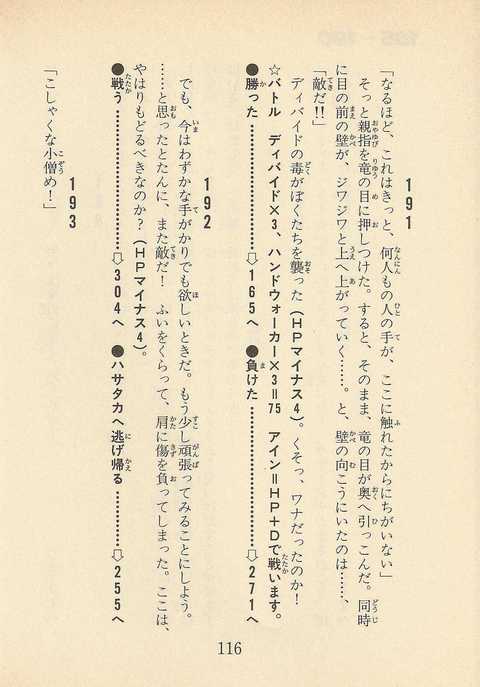 191
「なるほど、これはきっと、何人もの人の手が、ここに触れたからにちがいない」
そっと親指を竜の目に押しつけた。すると、そのまま、竜の目が奥へ引っこんだ。同時
に目の前の壁が、ジワジワと上へ上がっていく……。と、壁の向こうにいたのは……、
「敵だ!!」
ディバイドの毒がぼくたちを襲った(HPマイナス4)。くそっ、ワナだったのか!
☆バトル ディバイド×3、ハンドウォーカー×3=75 アイン=HP+Dで戦います。
●勝った……………⇨165へ ●負けた……………⇨271へ
192
でも、今はわずかな手がかりでも欲しいときだ。もう少し頑張ってみることにしよう。
……と思ったとたんに、また敵だ! ふいをくらって、肩に傷を負ってしまった。ここは、
やはりもどるべきなのか?(HPマイナス4)。
●戦う……………⇨304へ ●ハサタカへ逃げ帰る……………⇨255へ
193
「こしゃくな小僧め!」
116